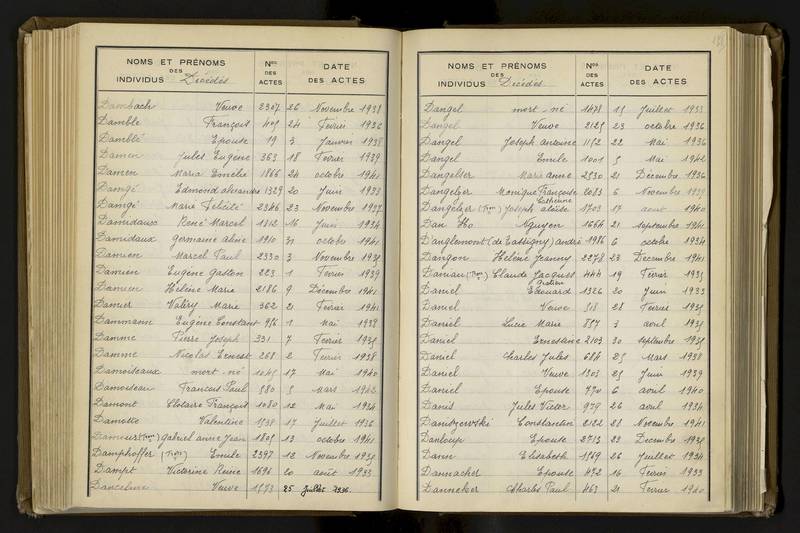 NOMS ET PRÉNOMS
DES
INDIVIDUS Décédés
Nos
DES
ACTES
DATE
DES ACTES
Dambach Veuve 2307 26 Novembre 1938
Damble François 405 24 Février 1936
Damblé Epouse 19 3 Janvier 1938
Damen Jules Eugène 363 18 Février 1939
Damen Maria Emelie 1866 24 octobre 1941
Damgé Edmond alexandre 1329 20 Juin 1938
Damgé Marie Félicité 2346 23 Novembre 1937
Damidaux René Marcel 1312 16 Juin 1934
Damidaux germaine aline 1910 31 octobre 1941
Damien Marcel Paul 2330 3 Novembre 1935
Damien Eugène gaston 223 1 Février 1939
Damien Hélène Marie 2186 9 Décembre 1941
Damier Valéry Marie 362 21 Février 1941
Dammann Eugène Constant 956 1 Mai 1938
Damme Pierre Joseph 331 7 Février 1935
Damme Nicolas Ernest 268 2 Février 1938
Damoiseaux mort-né 1045 17 Mai 1940
Damoiseau François Paul 580 5 Mars 1942
Damont Clotaire François 1080 12 Mai 1934
Damotte Valentine 1538 17 Juillet 1936
gabriel anne Jean 1805 13 octobre 1941
Damphoffer (Tion) Emile 2397 12 Novembre 1935
Dampt Victorine Reine 1696 20 août 1933
Danceline Veuve 1573 25 Juillet 1936
NOMS ET PRÉNOMS
DES
INDIVIDUS Décédés
Nos
DES
ACTES
DATE
DES ACTES
Dangel mort-né 1478 15 Juillet 1933
Dangel Veuve 2125 23 octobre 1936
Dangel Joseph antoine 1152 22 Mai 1936
Dangel Emile 1001 5 Mai 1942
Dangelser Marie anne 2530 21 Décembre 1936
Dangelzer Monique Françoise Catherine 2083 6 Novembre 1939
Dangelzer (Tion) Joseph aloïse 1703 17 aout 1940
Dan Ho Nguyen 1664 21 septembre 1941
Danglemont (de Tassigny) andré 1986 6 octobre 1934
Dangon Hélène Jeanny 2278 23 Décembre 1941
Danian (Tion) Claude Jacques gratien 444 19 Février 1935
Daniel Edouard 1326 20 Juin 1933
Daniel Veuve 518 28 Février 1935
Daniel Lucie Marie 857 3 avril 1935
Daniel Ernestine 2103 30 septembre 1935
Daniel Charles Jules 684 25 Mars 1938
Daniel Veuve 1303 25 Juin 1939
Daniel Epouse 770 6 avril 1940
Danis Jules Victor 979 26 avril 1934
Constantin 2122 28 Novembre 1941
Danloup Epouse 2713 23 Décembre 1935
Dann Elisabeth 1569 26 Juillet 1934
Dannacher Epouse 472 16 Février 1933
Danneker Charles Paul 463 21 Février 1940